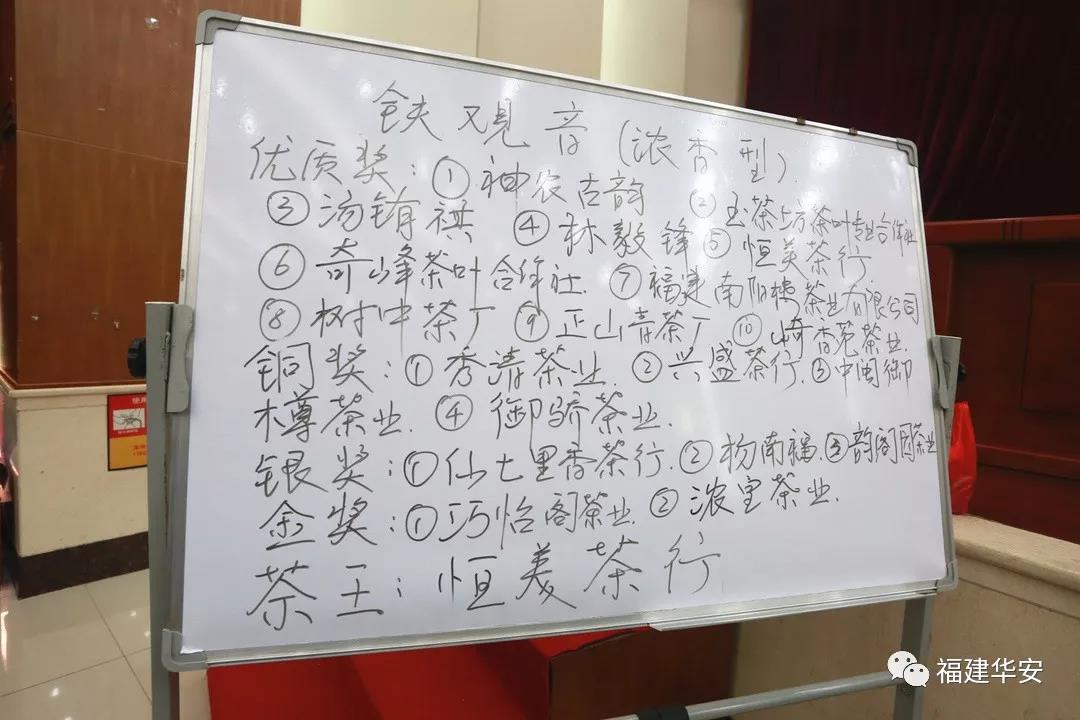 铁观音(浓香型)
优质奖:①神农古韵 ②玉茶坊茶叶专业合作社
③汤锖祺 ④林毅锋 ⑤恒美茶行
⑥奇峰茶叶合作社 ⑦福建南阳楼茶业有限公司
⑧树中茶厂 ⑨正山青茶厂 ⑩崎香苑茶业
铜奖:①秀清茶业 ②兴盛茶行 ③中闽御
樽茶业 ④御骄茶业
银奖:①仙七里香茶行 ②杨南福 ③韵阁园茶业
金奖:①巧怡阁茶业 ②浓里茶业
茶王:恒美茶行
福建华安